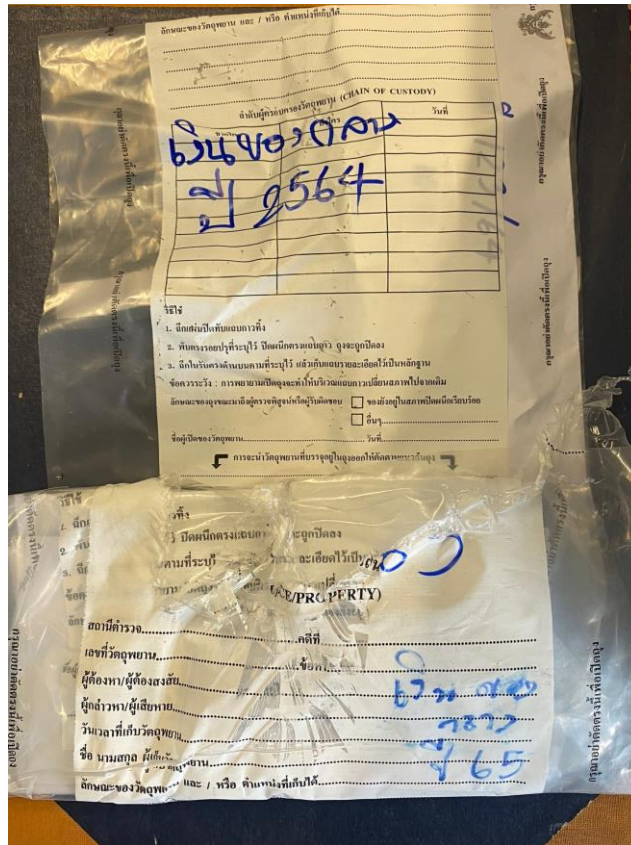 ลักษณะของวัตถุพยาน และ / หรือ ตำแหน่งที่เก็บได้
ลำดับผู้ครอบครองวัตถุพยาน (CHAIN OF CUSTODY)
วันที่
เงินของกลาง
ปี 2564
วิธีใช้
1. ฉีกแผ่นปิดทับแถบกาวทิ้ง
2. พับตรงรอยปรุที่ระบุไว้ ปิดผนึกตรงแถบกาว ถุงจะถูกปิดลง
3. ฉีกใบรับตรงด้านบนตามที่ระบุไว้ แล้วเก็บแถบรายละเอียดไว้เป็นหลักฐาน
ข้อควรระวัง : การพยายามเปิดถุงจะทำให้บริเวณแถบกาวเปลี่ยนสภาพไปจากเดิม
ลักษณะของถุงขณะมาถึงผู้ตรวจพิสูจน์หรือผู้รับผิดชอบ ของยังอยู่ในสภาพปิดผนึกเรียบร้อย
อื่นๆ
ชื่อผู้เปิดซองวัตถุพยาน วันที่
การจะนำวัตถุพยานที่บรรจุอยู่ในถุงออกให้ตัดตามแนวก้นถุง
กรุณาอย่าตัดตรงนี้เพื่อเปิดถุง
กรุณาอย่าตัดตรงนี้เพื่อเปิดถุง
วิธีใช้
ทิ้ง
ปิดผนึกตรงแถบกาว จะถูกปิดลง
ตามที่ระบุไว้ ละเอียดไว้เป็น
/PROPERTY)
สถานีตำรวจ คดีที่
เลขที่วัตถุพยาน
ผู้ต้องหา/ผู้ต้องสงสัย
ผู้กล่าวหา/ผู้เสียหาย
วันเวลาที่เก็บวัตถุพยาน
ชื่อ นามสกุล ผู้เก็บวัตถุพยาน
เงิน ของ
กลาง
ปี 65
ลักษณะของวัตถุพยาน และ / หรือ ตำแหน่งที่เก็บได้
กรุณาอย่าตัดตรงนี้เพื่อเปิดถุง